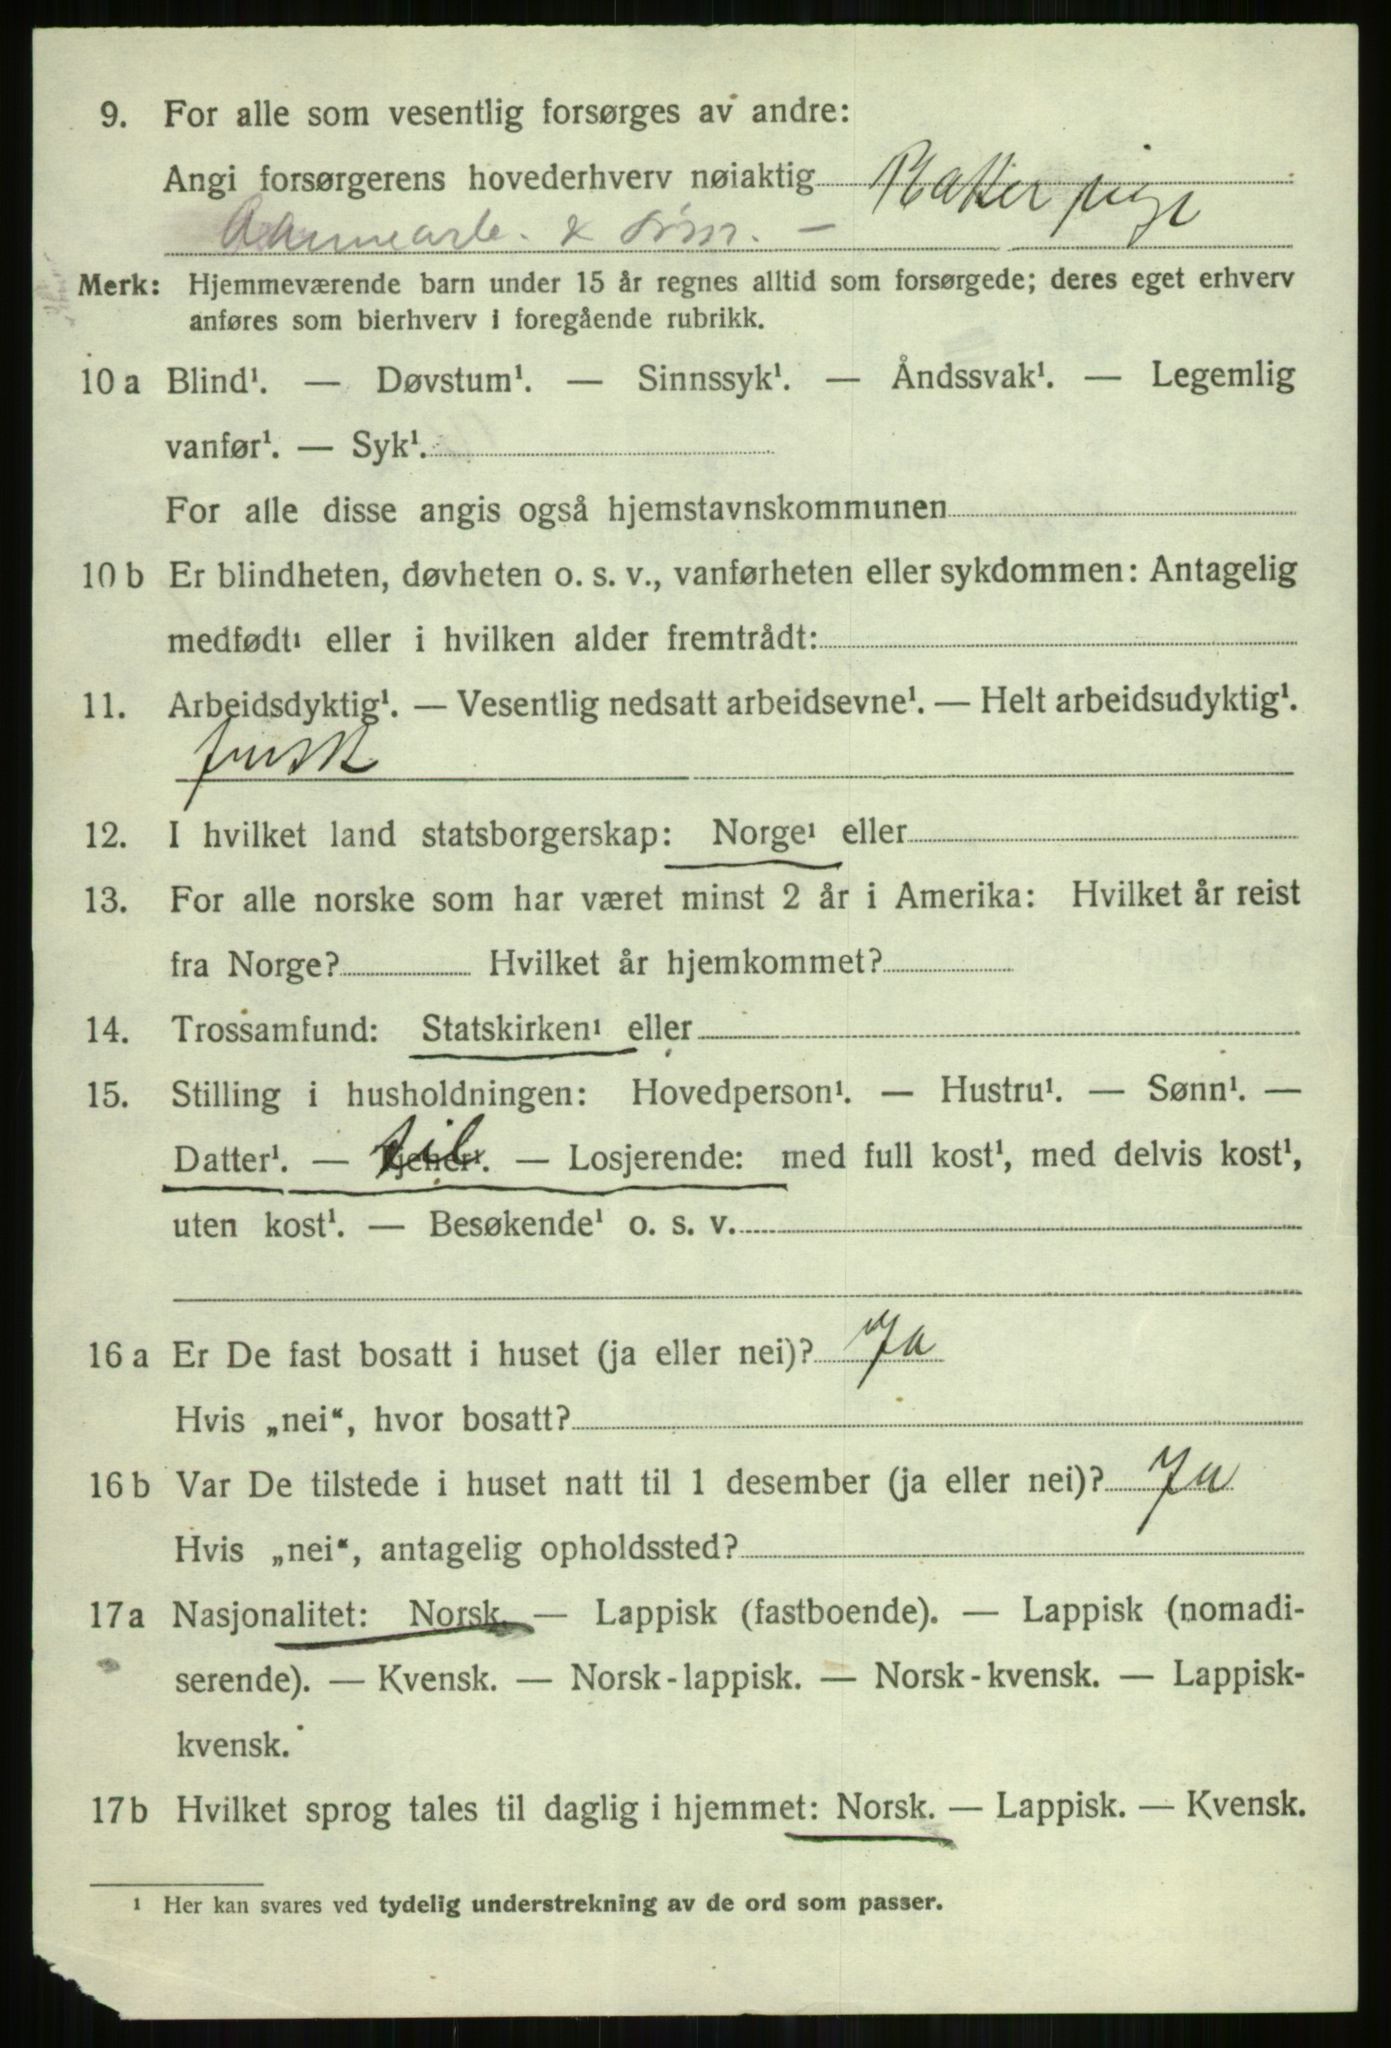 9. For alle som vesentlig forsørges av andre:
Angi forsørgerens hovederhverv nøiaktig
Merk: Hjemmeværende barn under 15 år regnes alltid som forsørgede; deres eget erhverv
anføres som bierhverv i foregående rubrikk.
10 a Blind¹. — Døvstum¹. — Sinnssyk¹. — Åndssvak¹. — Legemlig
vanfør¹. — Syk¹.
For alle disse angis også hjemstavnskommunen
10 b Er blindheten, døvheten o. s. v., vanførheten eller sykdommen: Antagelig
medfødt¹ eller i hvilken alder fremtrådt:
11. Arbeidsdyktig¹. — Vesentlig nedsatt arbeidsevne¹. — Helt arbeidsudyktig¹.
frisk
12. I hvilket land statsborgerskap: Norge¹ eller
13. For alle norske som har været minst 2 år i Amerika: Hvilket år reist
fra Norge? Hvilket år hjemkommet?
14. Trossamfund: Statskirken¹ eller
15. Stilling i husholdningen: Hovedperson¹. — Hustru¹. — Sønn¹. —
Datter¹. — til Tjener¹. — Losjerende: med full kost¹, med delvis kost¹,
uten kost¹. — Besøkende¹ o. s. v.
16 a Er De fast bosatt i huset (ja eller nei)? Ja
Hvis „nei“, hvor bosatt?
16 b Var De tilstede i huset natt til 1 desember (ja eller nei)? Ja
Hvis „nei“, antagelig opholdssted?
17 a Nasjonalitet: Norsk. — Lappisk (fastboende). — Lappisk (nomadi-
serende). — Kvensk. — Norsk-lappisk. — Norsk-kvensk. — Lappisk-
kvensk.
17 b Hvilket sprog tales til daglig i hjemmet: Norsk. — Lappisk. — Kvensk.
¹ Her kan svares ved tydelig understrekning av de ord som passer.